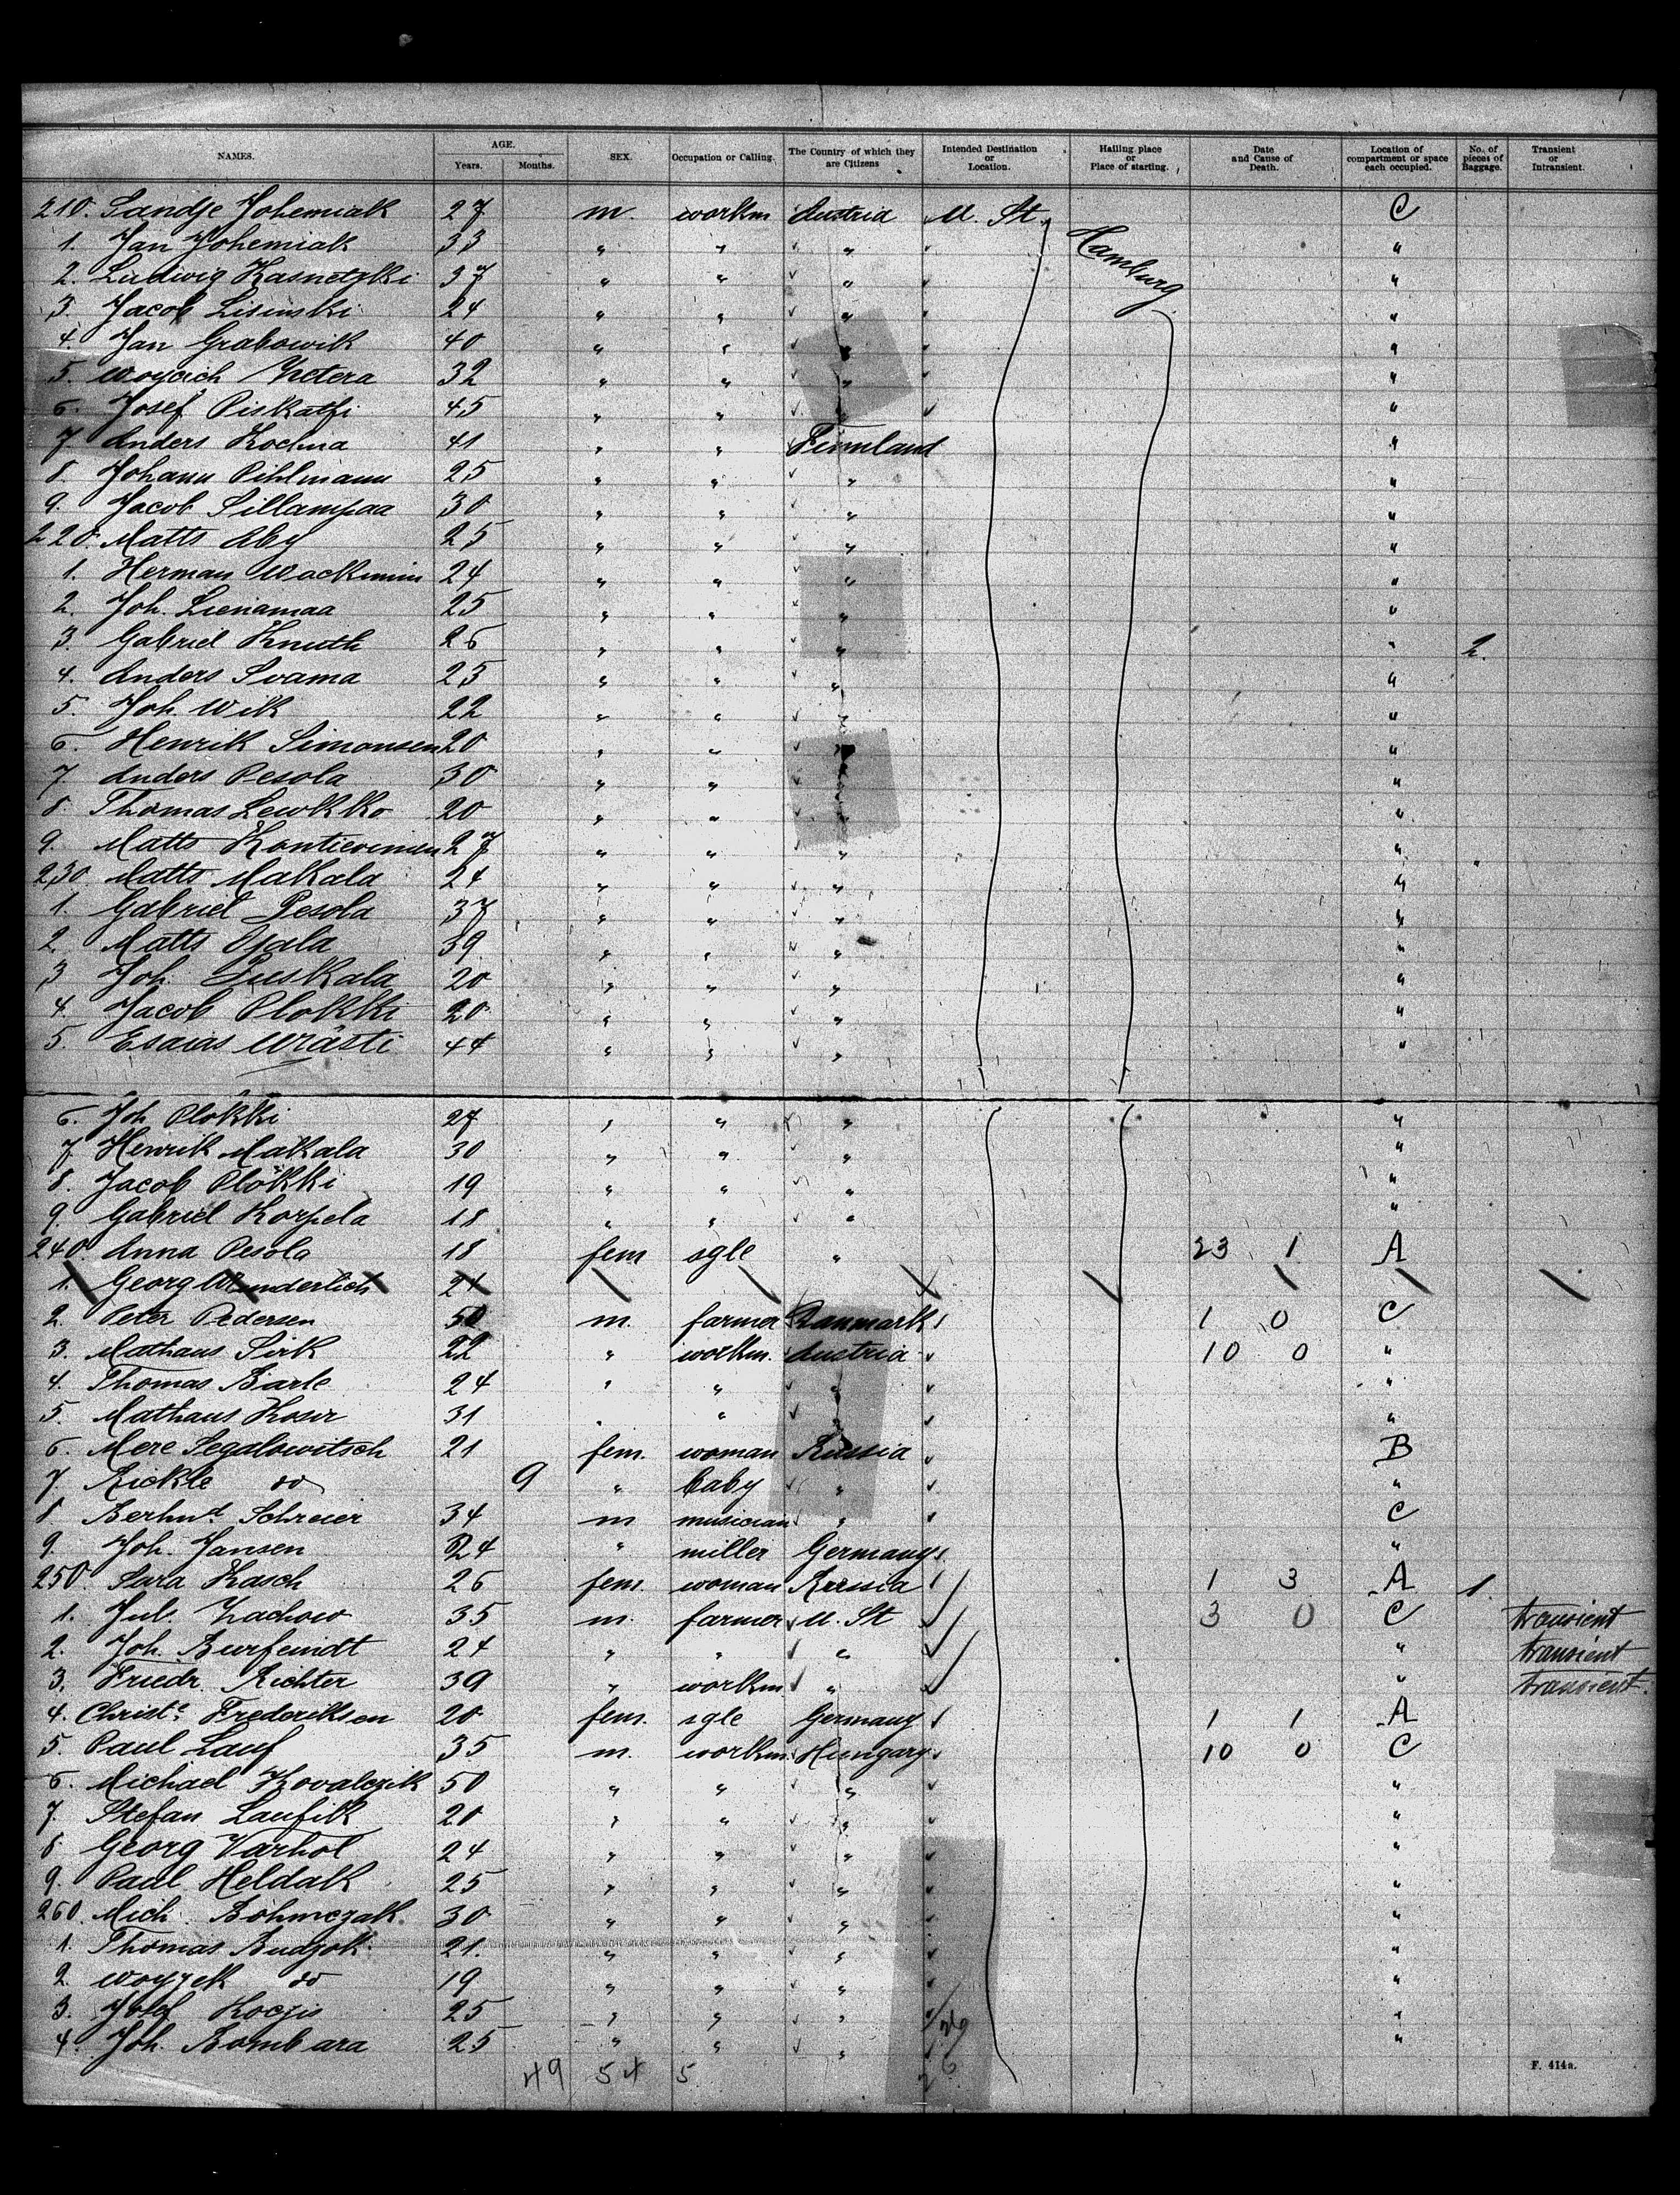 NAMES. AGE. Years. Months. SEX. Occupation or Calling. The Country of which they are Citizens Intended Destination or Location. Hailing place or Place of starting. Date and Cause of Death. Location of compartment or space each occupied. No. of pieces of Baggage. Transient or Intransient.
210. Sandje Johemiak 27 m. workm Austria U. St. C
1. Jan Johemiak 33 " " " Hamburg "
2. Ludwig Kasnetzki 37 " " " "
3. Jacob Lisinski 24 " " " "
4. Jan Grabowik 40 " " " "
5. Woyciech 32 " " " "
6. Josef 45 " " " "
7. Anders Kochna 41 " " Finnland "
8. Johann Pihlmann 25 " " " "
9. Jacob Sillampaa 30 " " " "
220. Matts Aby 25 " " " "
1. Herman Wackinnin 24 " " " "
2. Joh. Lienamaa 25 " " " "
3. Gabriel Knuth 26 " " " " 2.
4. Anders Svama 25 " " " "
5. Joh. Wik 22 " " " "
6. Henrik Simonsen 20 " " " "
7. Anders Pesola 30 " " " "
8 Thomas Lewkko 20 " " " "
9. Matts 27 " " " "
230. Matts Makala 24 " " " "
1. Gabriel Pesola 37 " " " "
2. Matts Ojala 39 " " " "
3 Joh. Puskala 20 " " " "
4. Jacob Plokki 20 " " " "
5. Esaias Wrästi 44 " " " "
6. Joh Plokki 27 " " " "
7 Henrik Makala 30 " " " "
8. Jacob Plokki 19 " " " "
9. Gabriel Korpela 18 " " " "
240. Anna Pesola 18 fem sgle " 23 1 A
1. Georg Wunderlich 24
2. Peter Pedersen 50 m. farmer Danmark 1 0 C
3. Mathaus Sirk 22 " workm. Austria 10 0 "
4. Thomas Barle 24 " " " "
5. Mathaus Koser 31 " " " "
6. Mere Segalowitsch 21 fem. woman Russia B
7. Rickle do 9 " baby " "
8 Bernhd. Schreier 34 m musician " C
9. Joh. Jansen 24 " miller Germany "
250. Sara Kasch 26 fem. woman Russia 1 3 A 1.
1. Jul. Zachow 35 m. farmer U. St 3 0 C transient
2. Joh. Burfeindt 24 " " " " transient
3. Friedr. Richter 39 " workm " " transient.
4. Christe. Frederiksen 20 fem. sgle Germany 1 1 A
5. Paul Lauf 35 m. workm. Hungary 10 0 C
6. Michael Kovalczik 50 " " " "
7. Stefan Laufik 20 " " " "
8 Georg Varhol 24 " " " "
9. Paul Heldak 25 " " " "
260. Mich. Bohmczak 30 " " " "
1. Thomas Budzok 21. " " " "
2. Woyzek do 19 " " " "
3. Josef Koczis 25 " " " "
4. Joh. Bombara 25 " " " "
49 54 5
F. 414a.